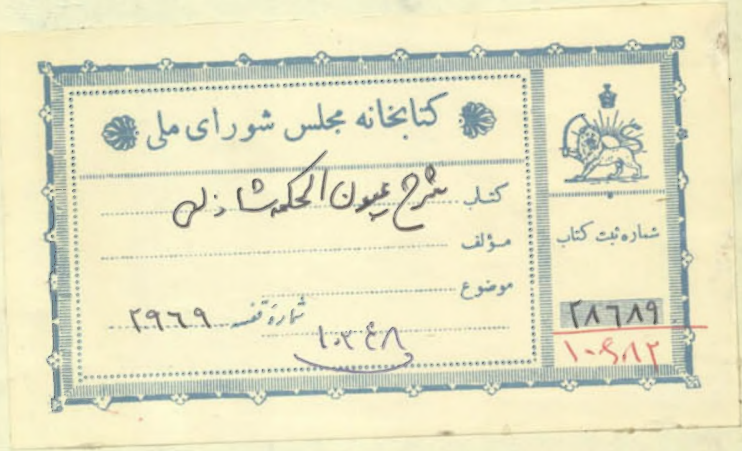 کتابخانه مجلس شورای ملی
کتاب شرح عیون الحکمه شاذلی
مؤلف
موضوع
شمارهٔ قفسه ۲۹۶۹
۱۰۳۴۸
شماره ثبت کتاب
۲۸۶۸۹